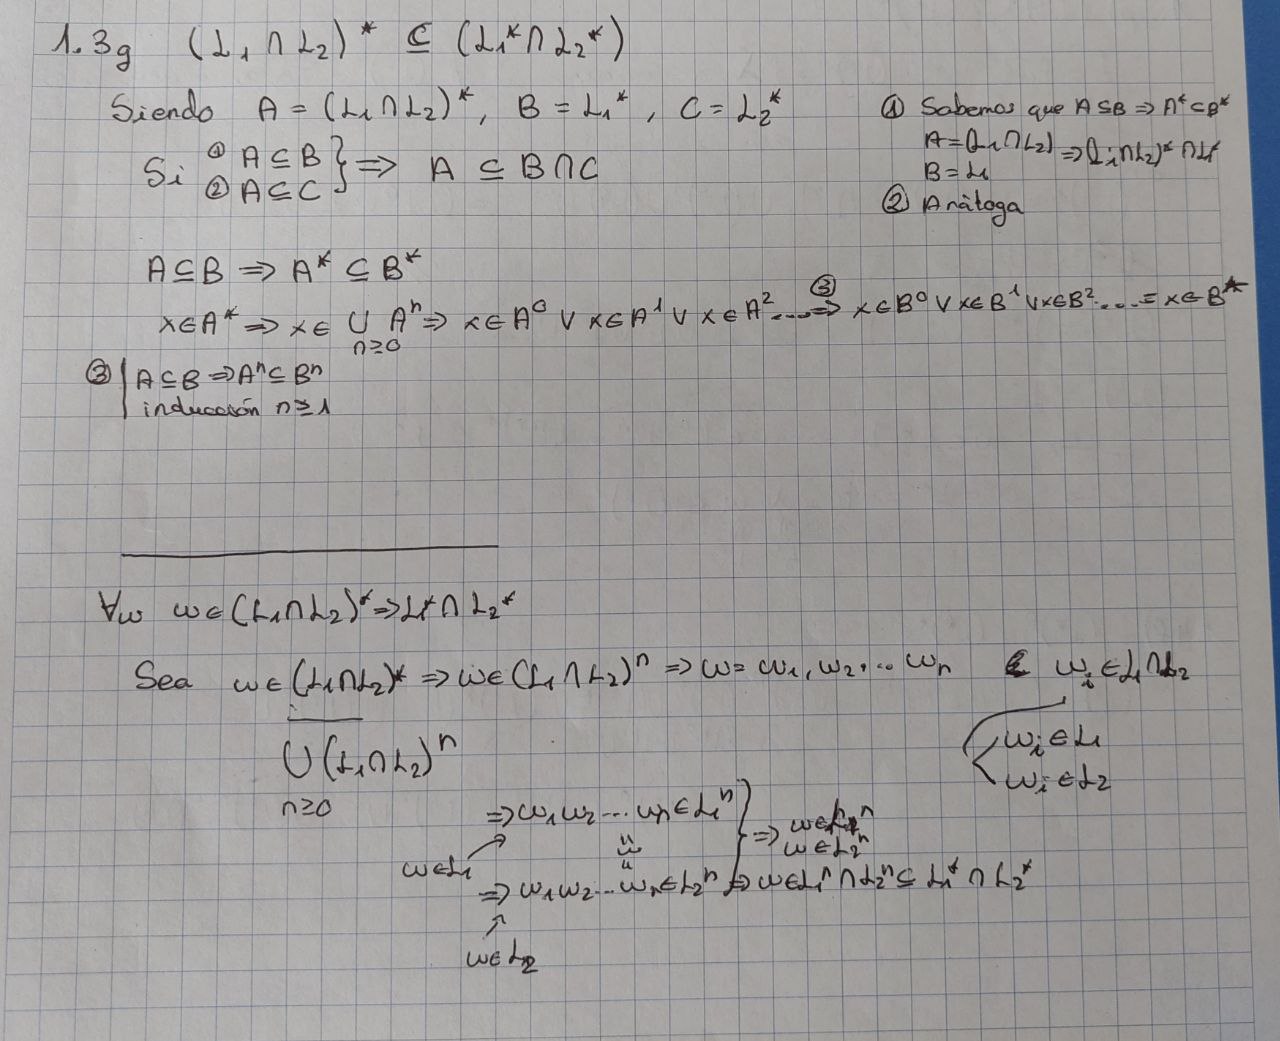 1.3g (L₁ ∩ L₂)* ⊆ (L₁* ∩ L₂*)
Siendo A = (L₁∩L₂)*, B = L₁*, C = L₂*
Si ① A ⊆ B
② A ⊆ C } ⇒ A ⊆ B∩C
① Sabemos que A⊆B ⇒ A*⊆B*
A = (L₁∩L₂) ⇒ (L₁∩L₂)* ∩ L₁*
B = L₁
② Análoga
A⊆B ⇒ A* ⊆ B*
x∈A* ⇒ x∈ ∪ Aⁿ ⇒ x∈A⁰ ∨ x∈A¹ ∨ x∈A² ... ⇒ x∈B⁰ ∨ x∈B¹ ∨ x∈B² .... = x∈B*
n≥0
③
③ A⊆B ⇒ Aⁿ⊆Bⁿ
inducción n≥1
∀w w∈(L₁∩L₂)* ⇒ L₁*∩L₂*
Sea w∈(L₁∩L₂)* ⇒ w∈(L₁∩L₂)ⁿ ⇒ w = w₁, w₂, ... wₙ wᵢ∈L₁∩L₂
∪(L₁∩L₂)ⁿ
n≥0
wᵢ∈L₁
wᵢ∈L₂
⇒ w₁w₂...wₙ∈L₁ⁿ } ⇒ w∈L₁ⁿ
w∈L₂ⁿ
w∈L₁
= w =
⇒ w₁w₂...wₙ∈L₂ⁿ ⇒ w∈L₁ⁿ∩L₂ⁿ ⊆ L₁* ∩ L₂*
w∈L₂